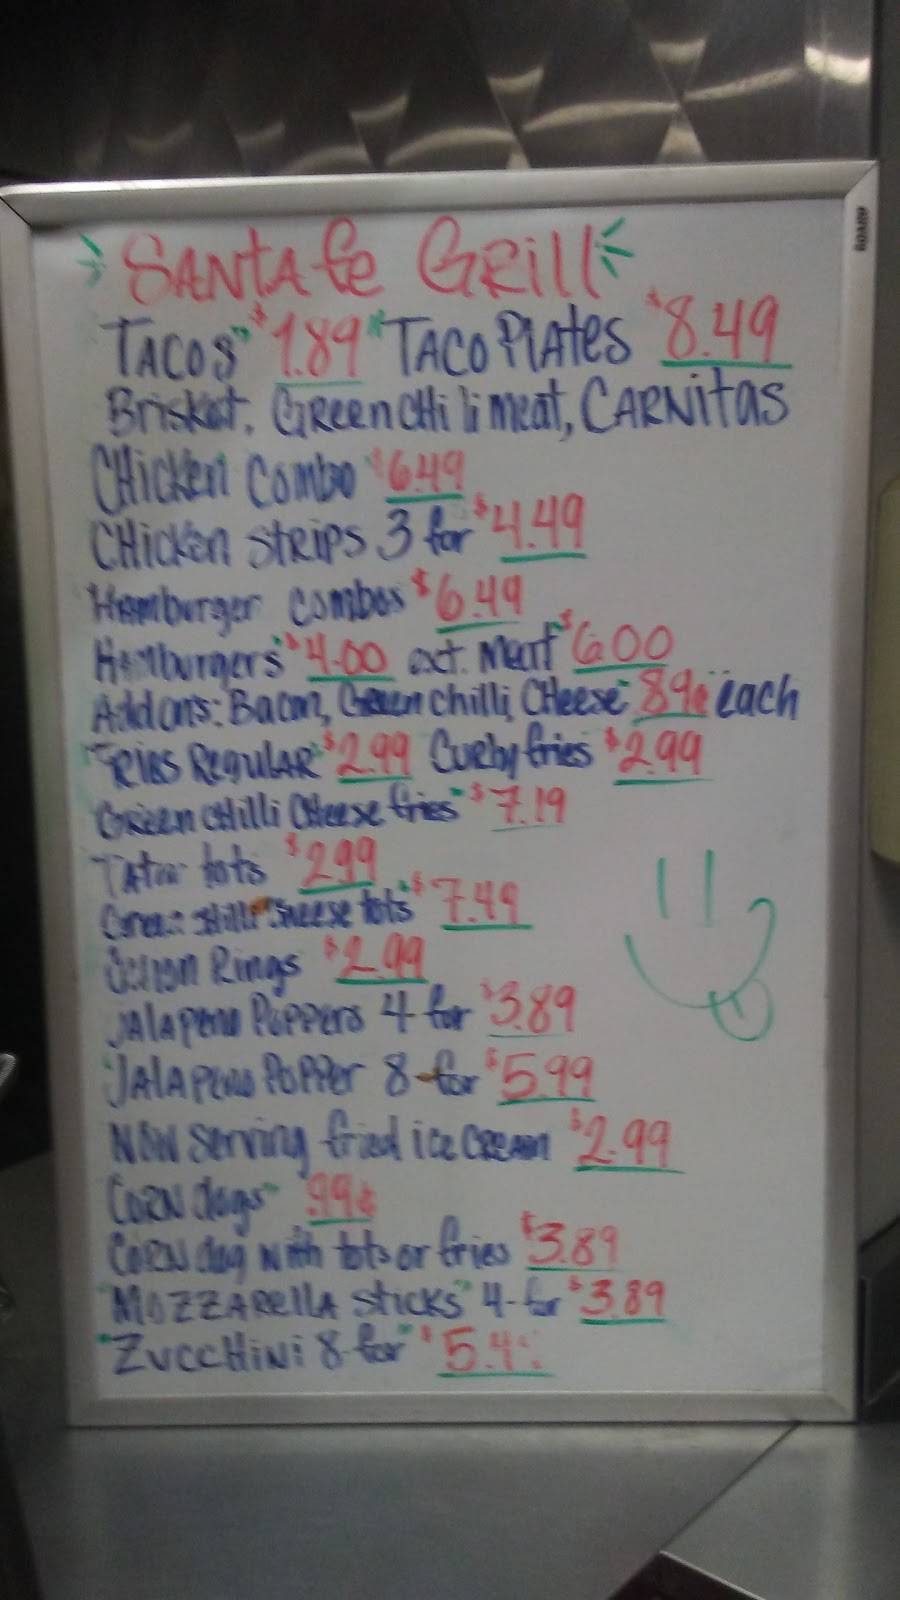 SANTA fe GRill
TACOS" $1.89 "TACO PlAtes $8.49
Brisket, GReen CHili meat, CARNitas
CHicken Combo $6.49
CHicken StRips 3 for $4.49
Hamburger combos $6.49
Hamburgers" $4.00 ext. meat" $6.00
Add ons: Bacon, Green chilli, CHeese" 89¢ each
"FRies RegulAR" $2.99 Curly fries $2.99
GReen cHilli CHeese fries" $7.19
TAtor tots $2.99
Green chilli cheese tots" $7.49
Onion Rings $2.99
JAlApeno Poppers 4 for $3.89
"JALApeno PoPPer 8-for $5.99
NOW Serving fried ice CReam $2.99
CoRN dogs" .99¢
CoRN dog with tots or fries $3.89
"MoZZARella sticks" 4-for $3.89
"ZuccHini 8-for" $5.4